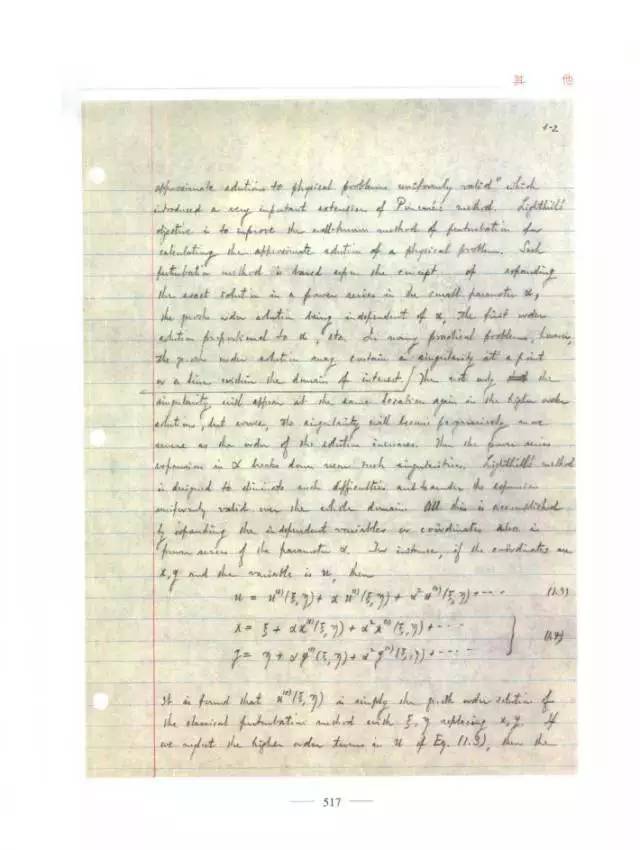 其 他
1-2
approximate solutions to physical problems uniformly valid" which
introduced a very important extension of Poincaré's method. Lighthill's
objective is to improve the well-known method of perturbation for
calculating the approximate solution of a physical problem. Such
perturbation method is based upon the concept of expanding
the exact solution in a power series in the small parameter α,
the zeroth order solution being independent of α, the first order
solution proportional to α, etc. In many practical problems, however,
the zeroth order solution may contain a singularity at a point
or a line within the domain of interest. Then not only the
singularity will appear at the same location again in the higher order
solutions, but worse, the singularity will become progressively more
severe as the order of the solution increases. Then the power series
expansion in α breaks down near such singularities. Lighthill's method
is designed to eliminate such difficulties and to render the expansion
uniformly valid over the whole domain. All this is accomplished
by expanding the independent variables or coördinates also in
power series of the parameter α. For instance, if the coördinates are
x, y and the variable is u, then
u = u⁽⁰⁾(ξ, η) + α u⁽¹⁾(ξ, η) + α² u⁽²⁾(ξ, η) + ---- (1.3)
x = ξ + α x⁽¹⁾(ξ, η) + α² x⁽²⁾(ξ, η) + ----
y = η + α y⁽¹⁾(ξ, η) + α² y⁽²⁾(ξ, η) + ---- (1.4)
It is found that u⁽⁰⁾(ξ, η) is simply the zeroth order solution of
the classical perturbation method with ξ, η replacing x, y. If
we neglect the higher order terms in u of Eq. (1.3), then the
517